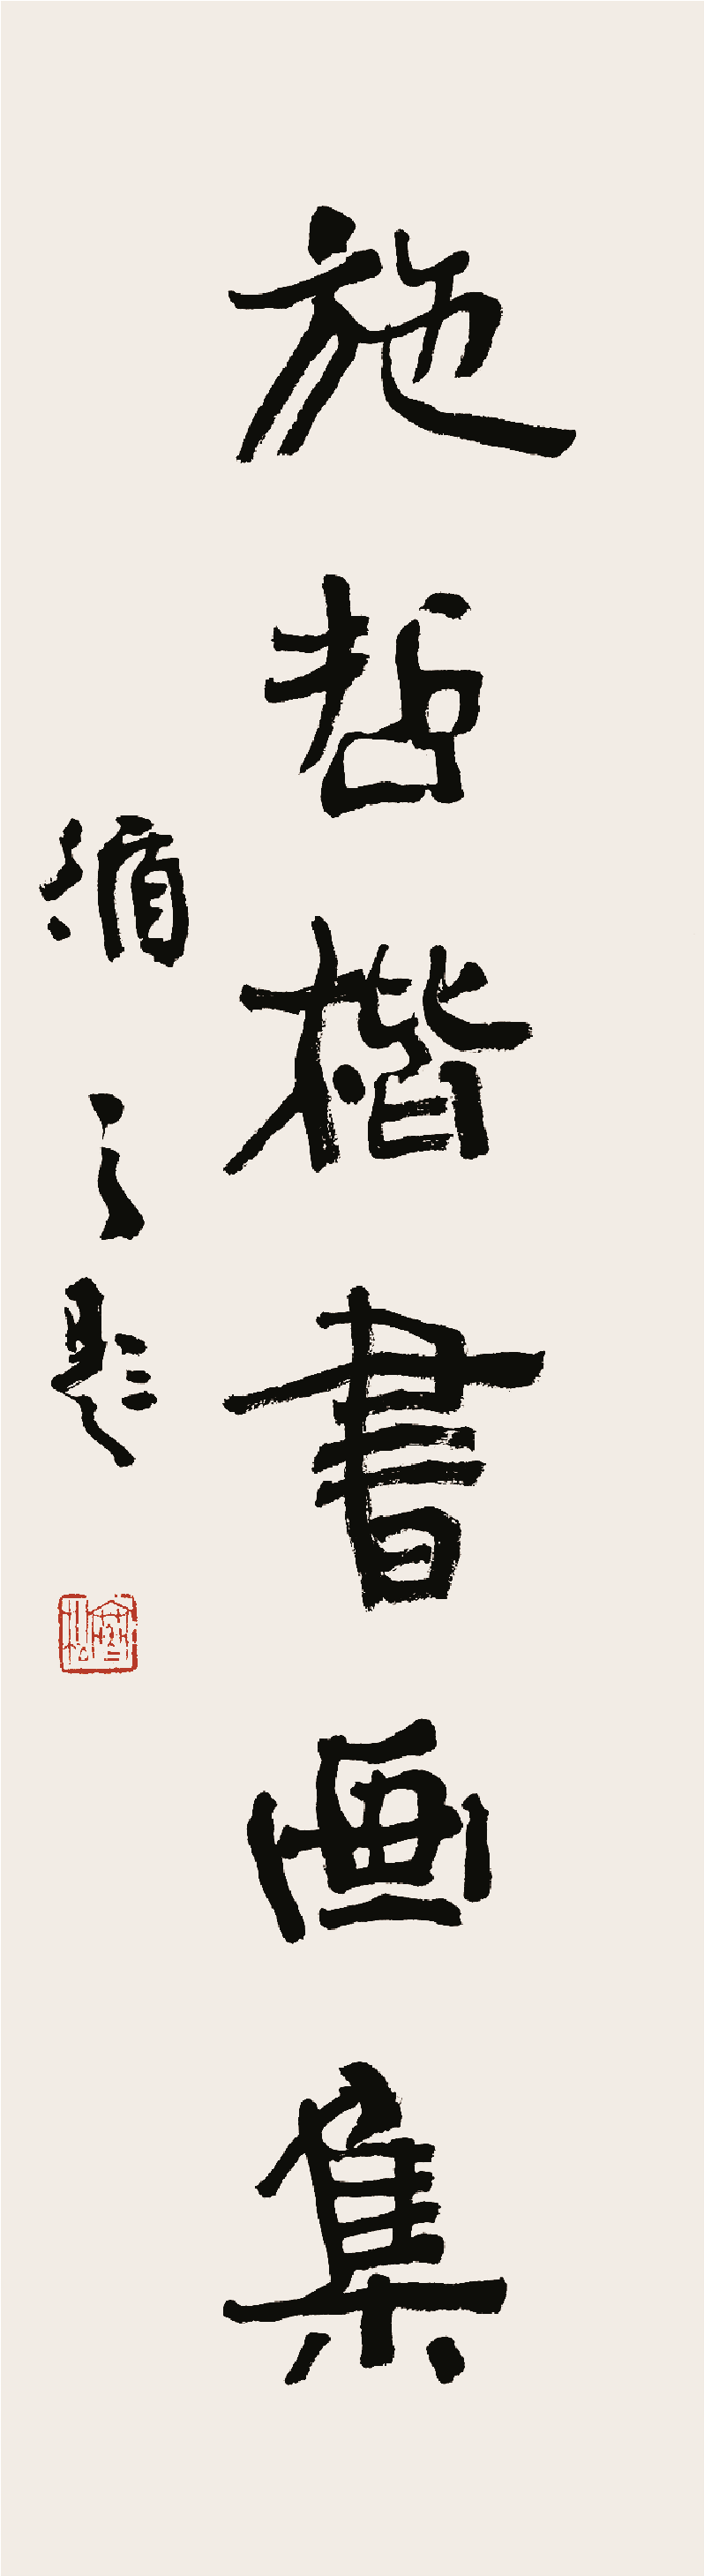 施哲楷書画集
循之題